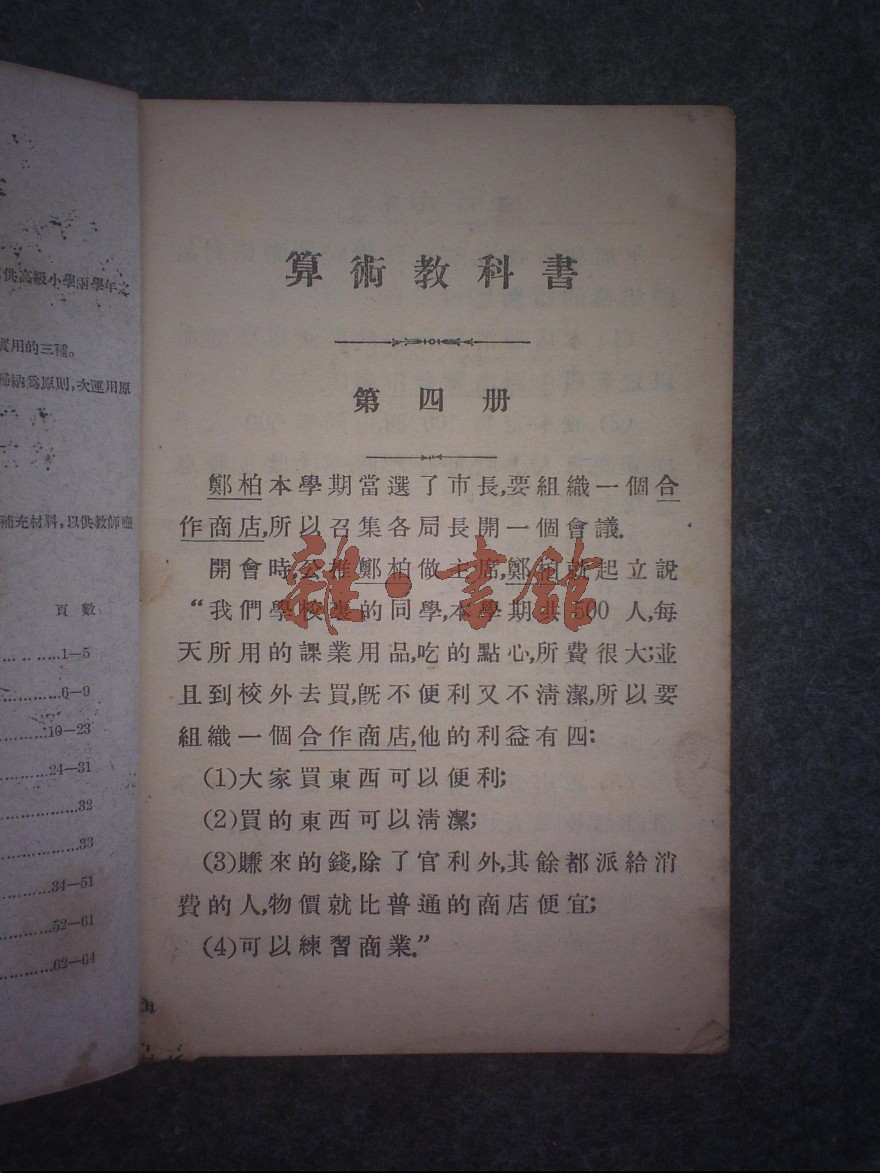 供高級小學兩學年之
實用的三種。
歸納爲原則,次運用原
補充材料,以供教師
頁數
1—5
6—9
10—23
24—31
32
33
34—51
52—61
62—64
算術教科書
第四册
鄭柏本學期當選了市長,要組織一個合
作商店,所以召集各局長開一個會議.
開會時,公推鄭柏做主席,鄭柏就起立說
“我們學校裏的同學,本學期共500人,每
天所用的課業用品,吃的點心,所費很大;並
且到校外去買,旣不便利又不淸潔,所以要
組織一個合作商店,他的利益有四:
(1)大家買東西可以便利;
(2)買的東西可以淸潔;
(3)賺來的錢,除了官利外,其餘都派給消
費的人,物價就比普通的商店便宜;
(4)可以練習商業.”
雜·書館